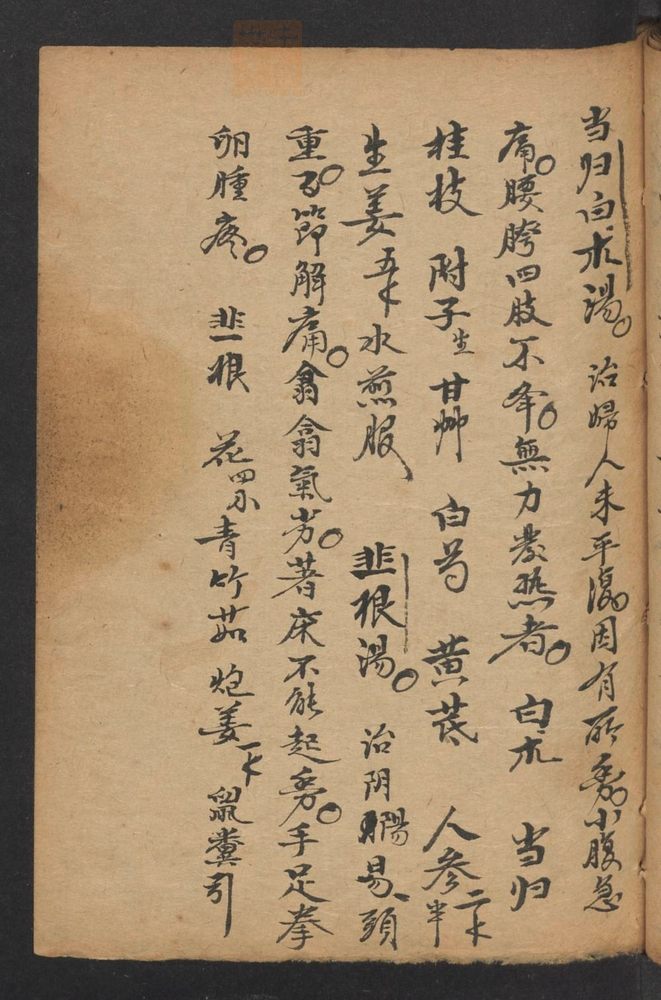 当归白朮湯。治婦人未平復因有所動小腹急
痛。腰胯四肢不舉。無力發熱者。白朮 当归
桂枝 附子生 甘艸 白芍 黃芪 人參半
生姜五 水煎服 韭根湯。治阴陽易、頭
重。百節解痛。翕翕氣労。著床不能起動。手足拳
卵腫疼。韭根 青竹茹 炮姜 鼠糞引